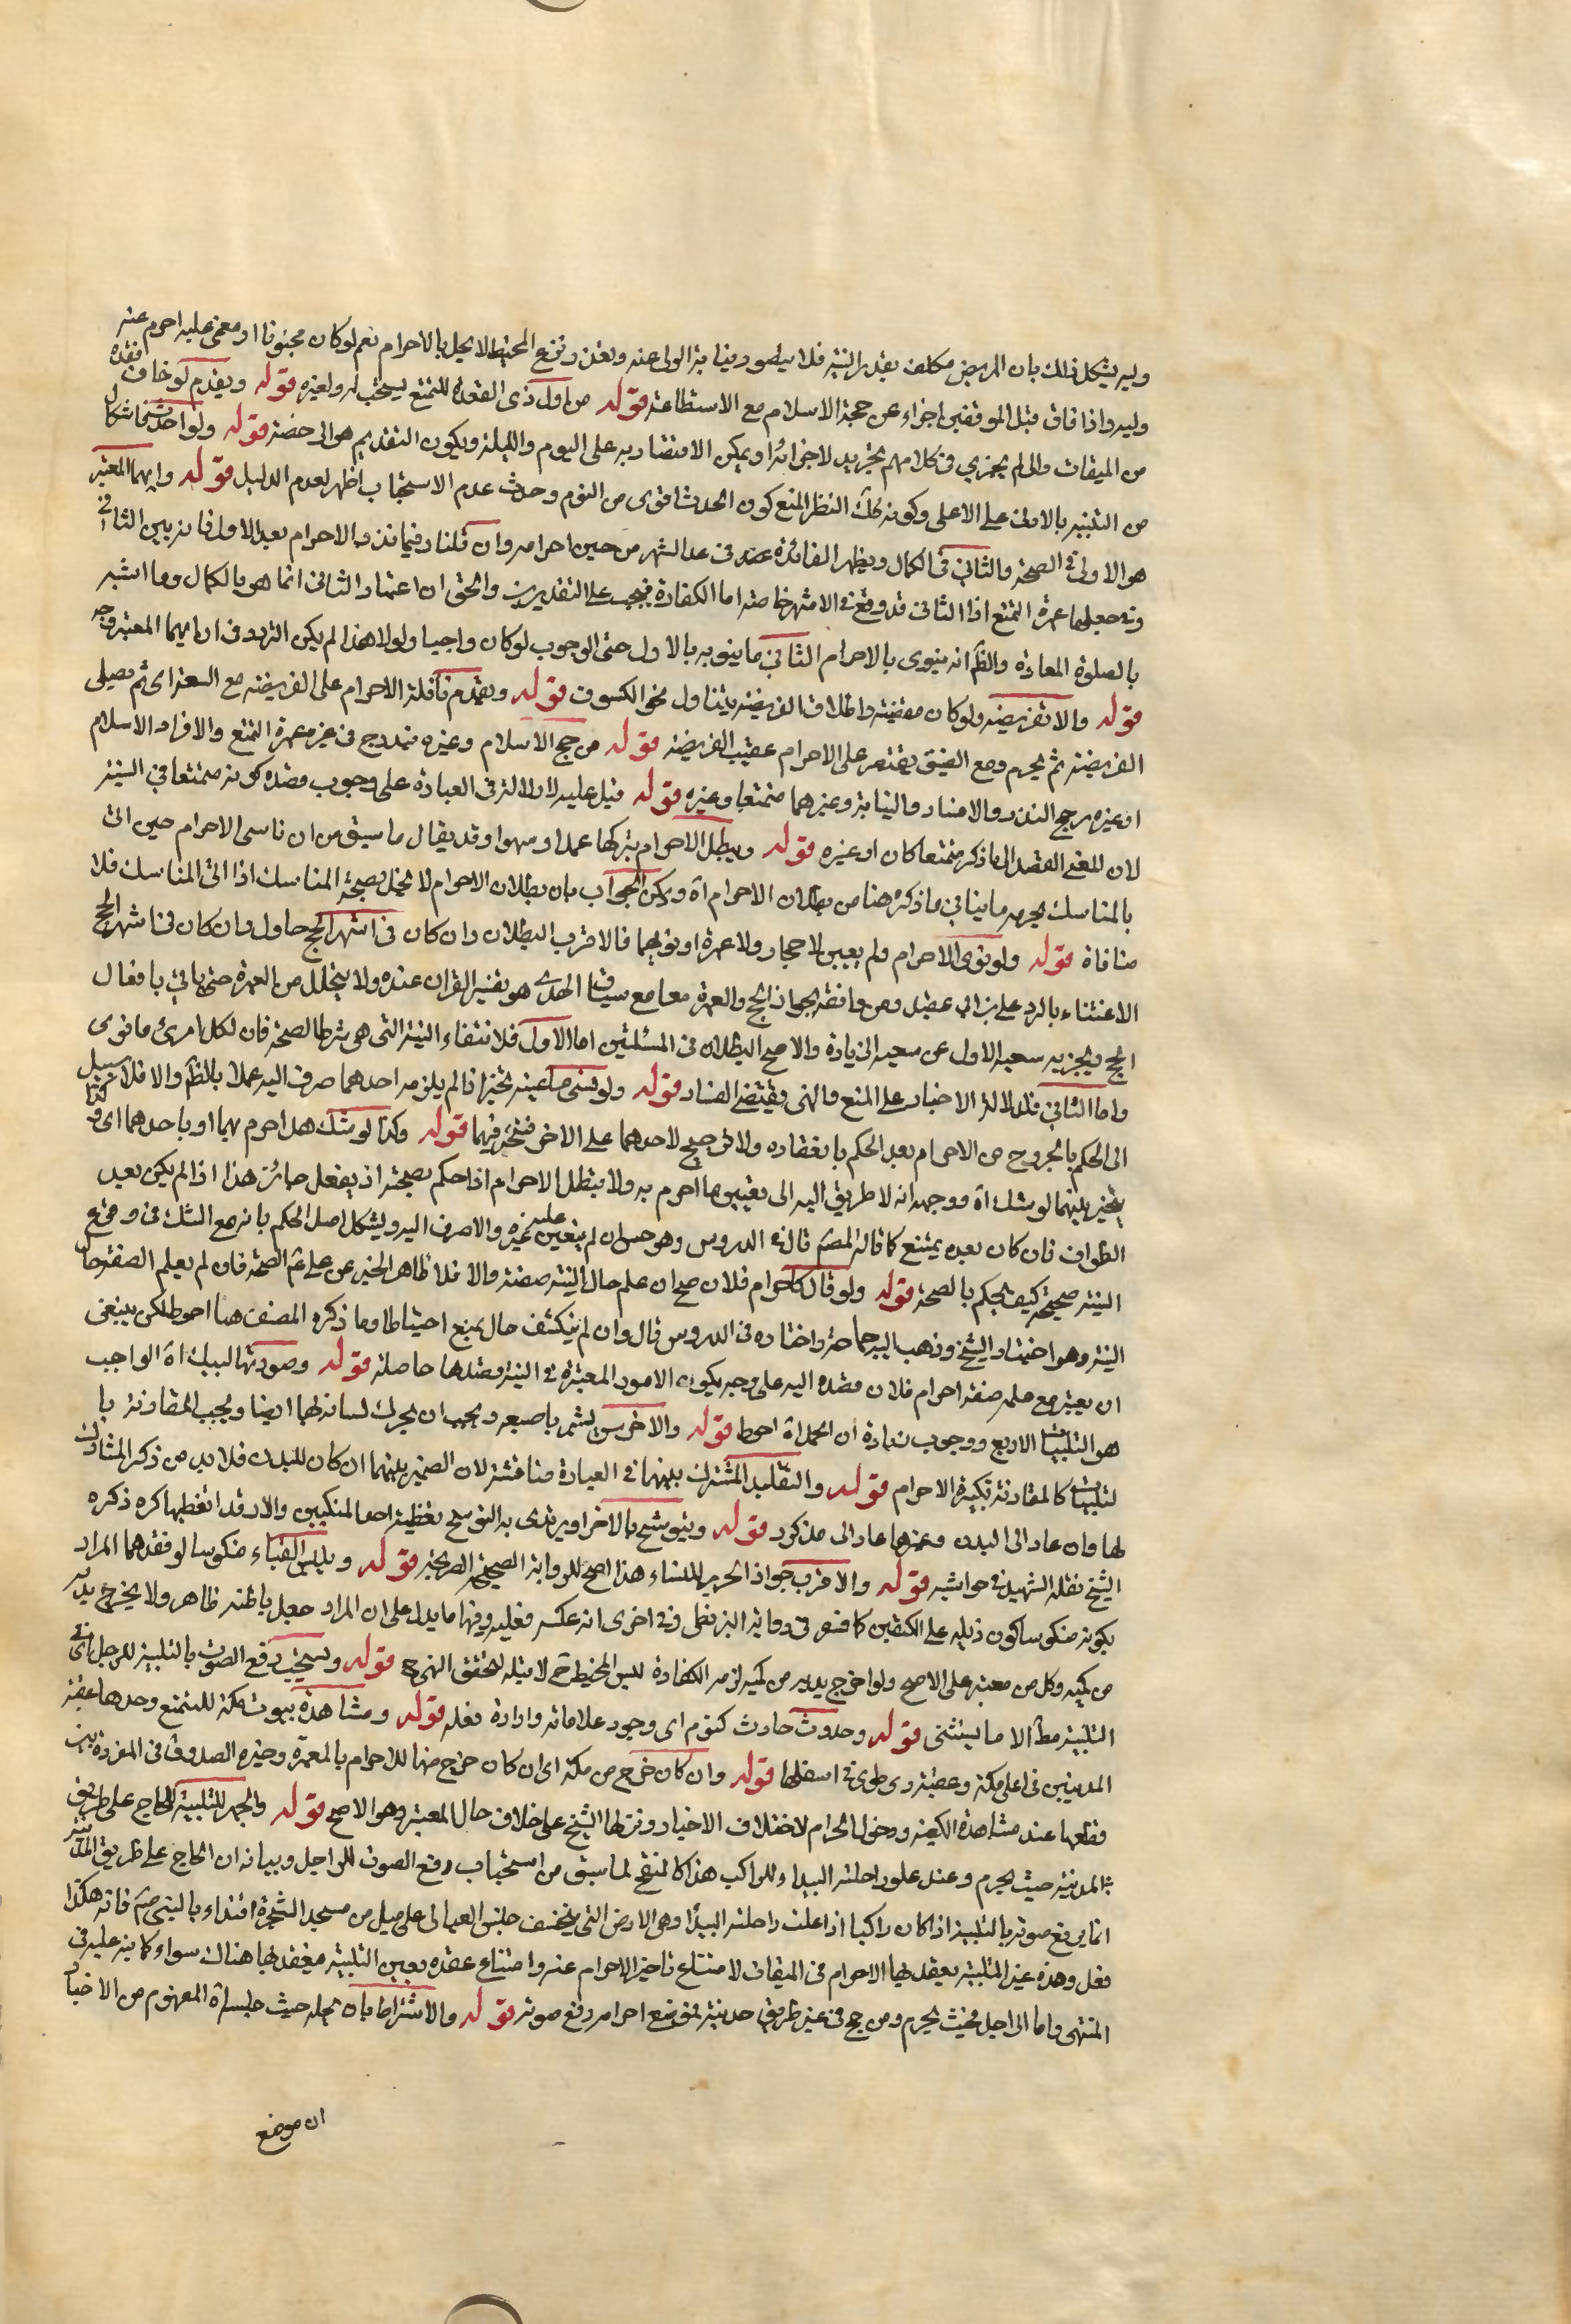 وليه يشكل ذلك بان المريض مكلف بقدر النية فلا يتصور نيابة الولي عنه وتعذر ونزع المخيط لا يخل بالاحرام نعم لو كان مجنونا او مغمى عليه احرم عنه
وليه واذا فاق قبل الموقفين اجزاء عن حجة الاسلام مع الاستطاعة قوله من اول ذي القعدة للتمتع يستحب له ولغيره قوله ويقدم لو خاف فقده
من الميقات والى لم يجزي في كلامهم تحديد لاجزائه ويمكن الاقتصار به على اليوم والليلة ويكون التقديم هو الى حضته قوله ولو احدث فاشكال
من التنبيه بالادنى على الاعلى وكونه محل النظر المنع كون الحدث اقوى من النوم وحدث عدم الاستحباب اظهر لعدم الدليل قوله وايهما المعتبر
هو الاولى في الصحة والثاني في الكمال ويظهر الفائدة عنه في عد الشهر من حين احرامه وان قلنا فيما نذر الاحرام بعد الاول فانه يبين الثاني
وفي جعلهما عمرة التمتع اذا الثاني قد وقع في الاشهر خاصة اما الكفارة فيجب على التقديرين والحق ان اعتبار الثاني انما هو بالكمال وما اشبه
بالصلوة المعادة والظ انه ينوي بالاحرام الثاني ما ينويه بالاول حتى الوجوب لو كان واجبا ولولا هذا لم يكن التردد في ان ايهما المعتبر وجه
قوله والا تفريضة ولو كان مقضية واطلاق الفريضة يتناول نحو الكسوف قوله ويقدم نافلة الاحرام على الفريضة مع السعة اي ثم يصلي
الفريضة ثم يحرم ومع الضيق يقتصر على الاحرام عقيب الفريضة قوله من حج الاسلام وغيره يندرج في غيره عمرة التمتع والافراد الاسلام
او غيره وحج النذر والافساد والنيابة وغيرهما متمتعا وغيره قوله قيل عليه لا دلالة في العبادة على وجوب قصده كونه متمتعا في النية
لان المعنى القصد الى ما ذكر متمتعا كان او غيره قوله ويبطل الاحرام بتركها عمدا او سهوا وقد يقال ما سبق من ان ناسي الاحرام حين اتى
بالمناسك يجزيه ما ينافي ما ذكره هنا من بطلان الاحرام اه ويمكن الجواب بان بطلان الاحرام لا يخل بصحة المناسك اذا اتى المناسك فلا
منافاة قوله ولو نوى الاحرام ولم يعين لا حجا ولا عمرة او نويهما فالاقرب البطلان وان كان في اشهر الحج حاول وان كان في اشهر الحج
الاعتناء بالرد على بن ابي عقيل ومن وافقه بجواز الحج والعمرة معا مع سياق الهدي هو تفسير القران عنده ولا يتحلل من العمرة حتى ياتي بافعال
الحج ويجزيه سعيه الاول عن سعيه الى زيادة والاصح البطلان في المسئلتين اما الاول فلانتفاء النية التي هي شرط الصحة فان لكل امرئ ما نوى
واما الثاني فلدلالة الاخبار على المنع والنهي ويقتضي الفساد قوله ولو نسي ما عينه تخير اذا لم يلزمه احدهما صرف اليه عملا بالظ والا فلا سبيل
الى الحكم بالخروج من الاحرام بعد الحكم بانعقاده ولا ترجيح لاحدهما على الاخر فتخير فيهما قوله وكذا لو شك هل احرم بهما او باحدهما اي وكذا
يتخير بينهما لو شك اه ووجهه انه لا طريق اليه الى تعيين ما احرم به ولا يبطل الاحرام اذا حكم بصحته اذ يفعل جائز هذا اذا لم يكن بعد
الطواف فان كان بعده يمتنع كما قاله المصم قال في الدروس وهو حسن ان لم يتعين عليه غيره والا صرف اليه ويشكل اصل الحكم بانه مع الشك في وقوع
النية صحيحة كيف يحكم بالصحة قوله ولو قال كاحرام فلان صح ان علم حال النية صفته والا فلا ظاهر الخبر عن علي ع الصحة فان لم يعلم الصفة حال
النية وهو اختيار الشيخ وذهب اليه جماعة واختاره في الدروس قال وان لم ينكشف حال يمنع احتياطا وما ذكره المصنف هنا احوط لكن ينبغي
ان يعتبر مع علمه صفة احرام فلان قصده اليه على وجه يكون الامور المعتبرة في النية وقصدها حاصلة قوله وصورتها لبيك اه الواجب
هو التلبيات الاربع ووجوب زيادة ان الحمد اه احوط قوله والاخرس يشير باصبعه ويجب ان يحرك لسانه لهما ايضا ويجب المقارنة با
لتلبيات كالمقارنة بتكبيرة الاحرام قوله والتقليد المشترك بينهما في العبادة مناقشة لان الضمير بينهما ان كان للبدن فلا بد من ذكر المشارك
لها وان عاد الى البدن وغيرها عاد الى مذكور قوله ويتوشح بالاخر او يرتدى به التوشح تغطية احد المنكبين والارتداء تغطيهما كره ذكره
الشيخ نقله الشهيد في حواشيه قوله والاقرب جواز الحرير للنساء هذا اصح للرواية الصحيحة الصريحة قوله ويلبس القباء منكوسا لو فقدهما المراد
بكونه منكوسا كون ذيليه على الكتفين كما فسر في رواية البزنطي وفي اخرى انه عكسه فعليه وفيها ما يدل على ان المراد جعل باطنه ظاهره ولا يخرج يديه
من كميه وكل من معتبر على الاصح ولو اخرج يديه من كميه لزمه الكفارة للبس المخيط لا مثيله لتحقق النهي ح قوله ويستحب رفع الصوت بالتلبية للرجل اي في
التلبية مط الا ما يستثنى قوله وحدوث حادث كنوم اي وجود علاماته وارادة فعله قوله ومشاهدة بيوت مكة للمتمتع وحدها عقبة
المدنيين في اعلى مكة وعقبة ذي طوى في اسفلها قوله وان كان خرج من مكة اي ان كان خرج منها للاحرام بالعمرة وخيره الصدوق في المفردة بين
قطعها عند مشاهدة الكعبة ودخول الحرام لاختلاف الاخبار ونزلها الشيخ على خلاف حال المعتبر وهو الاصح قوله والجهر بالتلبية للحاج على طريق
المدينة حيث يحرم وعند علو راحلته البيدا وللراكب هذا كالمنقح لما سبق من استحباب رفع الصوت للراجل وبيانه ان الحاج على طريق المدينة
انما يرفع صوته بالتلبية اذا كان راكبا اذا علت راحلته البيدا وهي الارض التي يخسف جلس العبالى على ميل من مسجد الشجرة اقتداء بالنبي ص فانه هكذا
فعل وهذه غير التلبية يعقد لها الاحرام في الميقات لامتناع تاخير الاحرام عنه وامتناع عقده بعين التلبية فيعقد لها هناك سواء كما نبه عليه في
المنتهى واما الراجل فحيث يحرم ومن حج في غير طريق مدينة فموضع احرامه رفع صوته قوله والاشتراط بان يحله حيث حبسه اه المفهوم من الاخبار
ان موضع